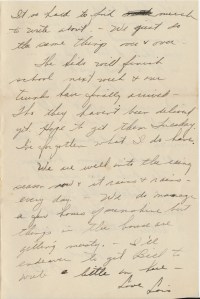 It is hard to find much
to write about - We just do
the same things over & over
The kids will finish
school next week & our
trunks have finally arrived -
Tho they haven't been delivered
yet. Hope to get them Tuesday
I've forgotten what I do have.
We are well into the rainy
season now & it rains & rains -
every day - We do manage
a few hours of sunshine but
things in the house are
getting moldy. - I'll
endeavor to get to
write a little on here -
Love Lois